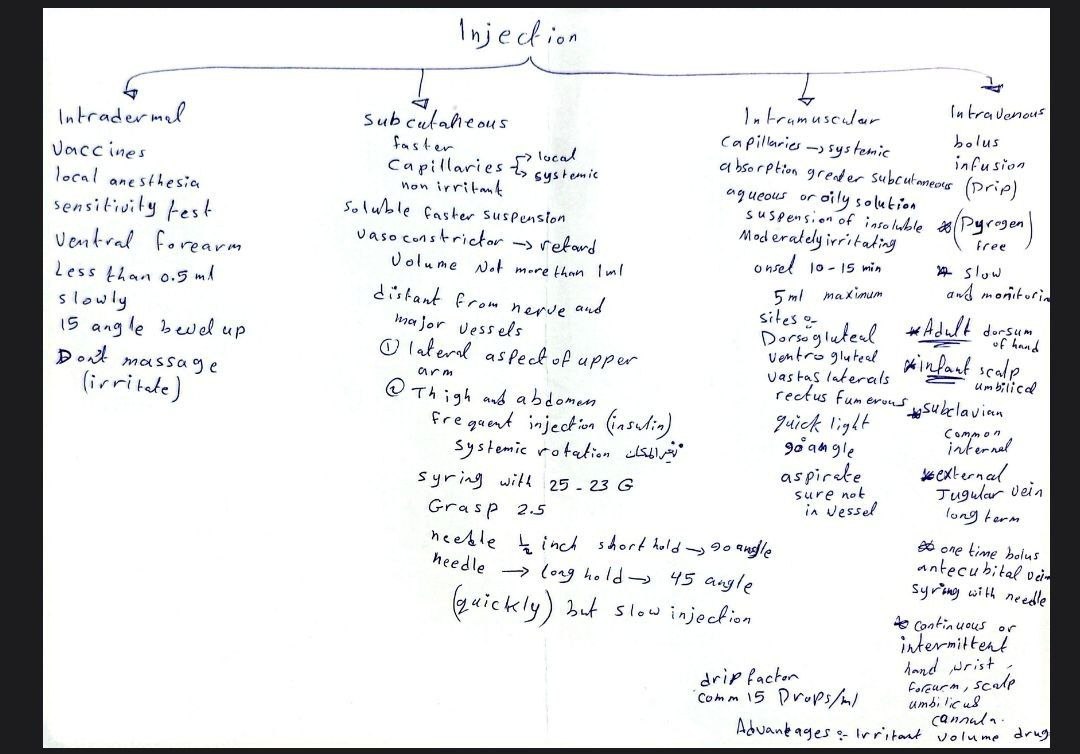 Injection
Intradermal
Vaccines
local anesthesia
sensitivity test
Ventral forearm
Less than 0.5 ml
slowly
15 angle bevel up
Dont massage
(irritate)
subcutaneous
faster
Capillaries → local
→ systemic
non irritant
Soluble faster suspension
Vasoconstrictor → retard
Volume Not more than 1ml
distant from nerve and
major vessels
① lateral aspect of upper
arm
② Thigh and abdomen
frequent injection (insulin)
Systemic rotation تغير المكان
syring with 25 - 23 G
Grasp 2.5
needle ½ inch short hold → 90 angle
needle → long hold → 45 angle
(quickly) but slow injection
Intramuscular
Capillaries → systemic
absorption greader subcutaneous
aqueous or oily solution
suspension of insoluble
Moderately irritating
onset 10 - 15 min
5 ml maximum
sites :-
Dorsogluteal
ventrogluteal
vastas laterals
rectus fumerous
quick light
90° angle
aspirate
sure not
in vessel
Intravenous
bolus
infusion
(Drip)
* (Pyrogen
free)
* slow
and monitorin
* Adult dorsum
of hand
* infant scalp
umbilical
* subclavian
common
internal
* external
Jugular vein
long term
* one time bolus
antecubital vein
syring with needle
* continuous or
intermittent
hand, wrist,
forearm, scalp
umbilicus
cannula.
drip factor
comm 15 Drops/ml
Advantages :- Irritant volume drug